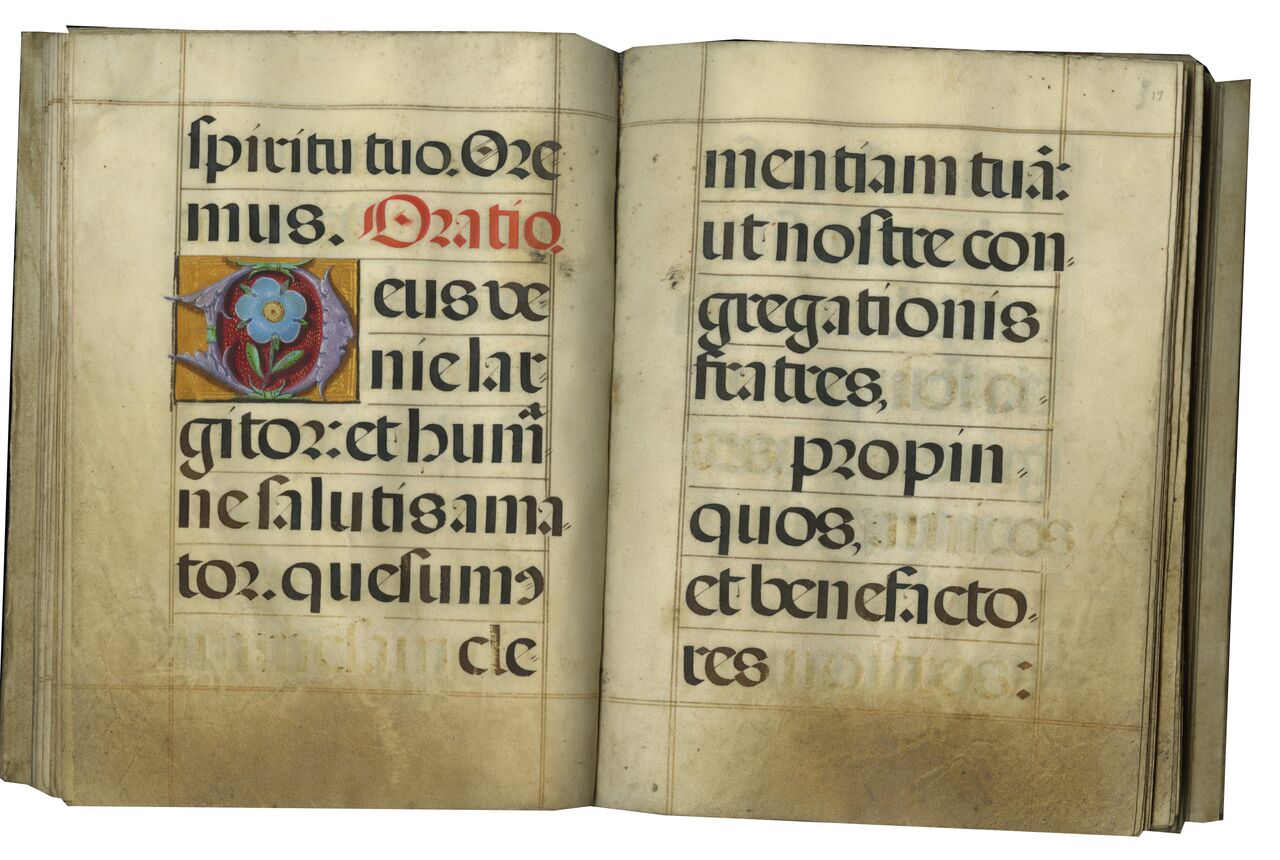 spiritu tuo. Ore
mus. Oratio.
Deus ve
nie lar
gitor: et humā
ne salutis ama
tor. quesumꝰ
cle
17
mentiam tuā:
ut nostre con
gregationis
fratres,
propin
quos,
et benefacto
res :